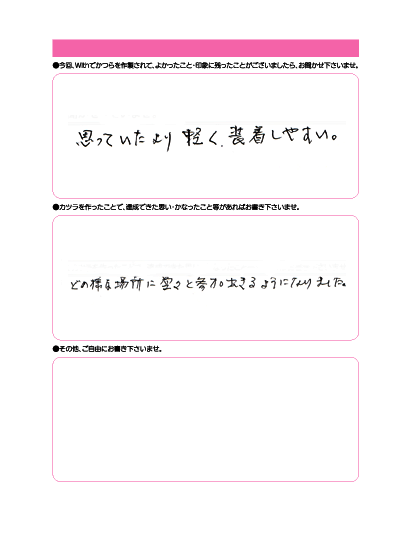 ●今回、Withでかつらを作製されて、よかったこと・印象に残ったことがございましたら、お聞かせ下さいませ。
思っていたより 軽く、装着しやすい。
●カツラを作ったことで、達成できた思い・かなったこと等があればお書き下さいませ。
どの様な場所に堂々と参加出きるようになりました。
●その他、ご自由にお書き下さいませ。